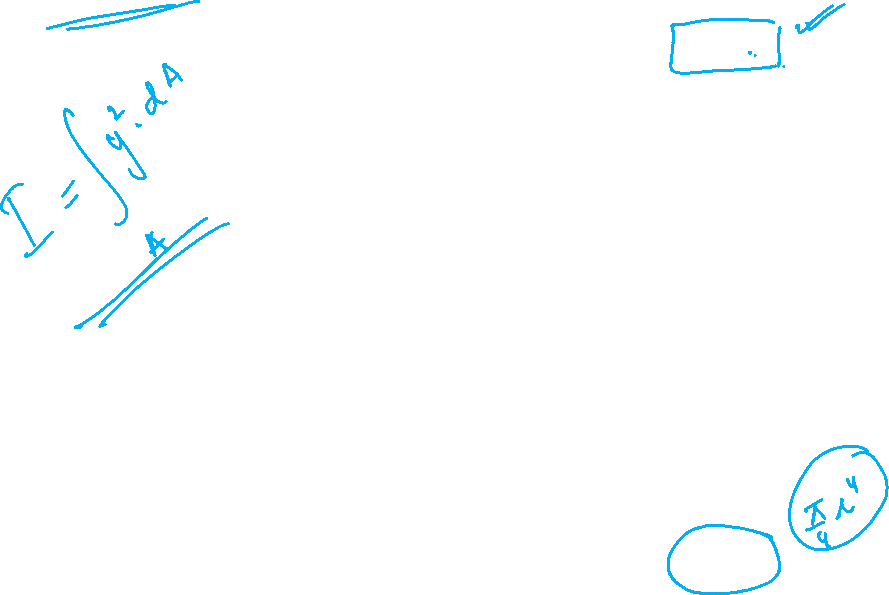 I = ∫_A y². dA
π/4 r⁴